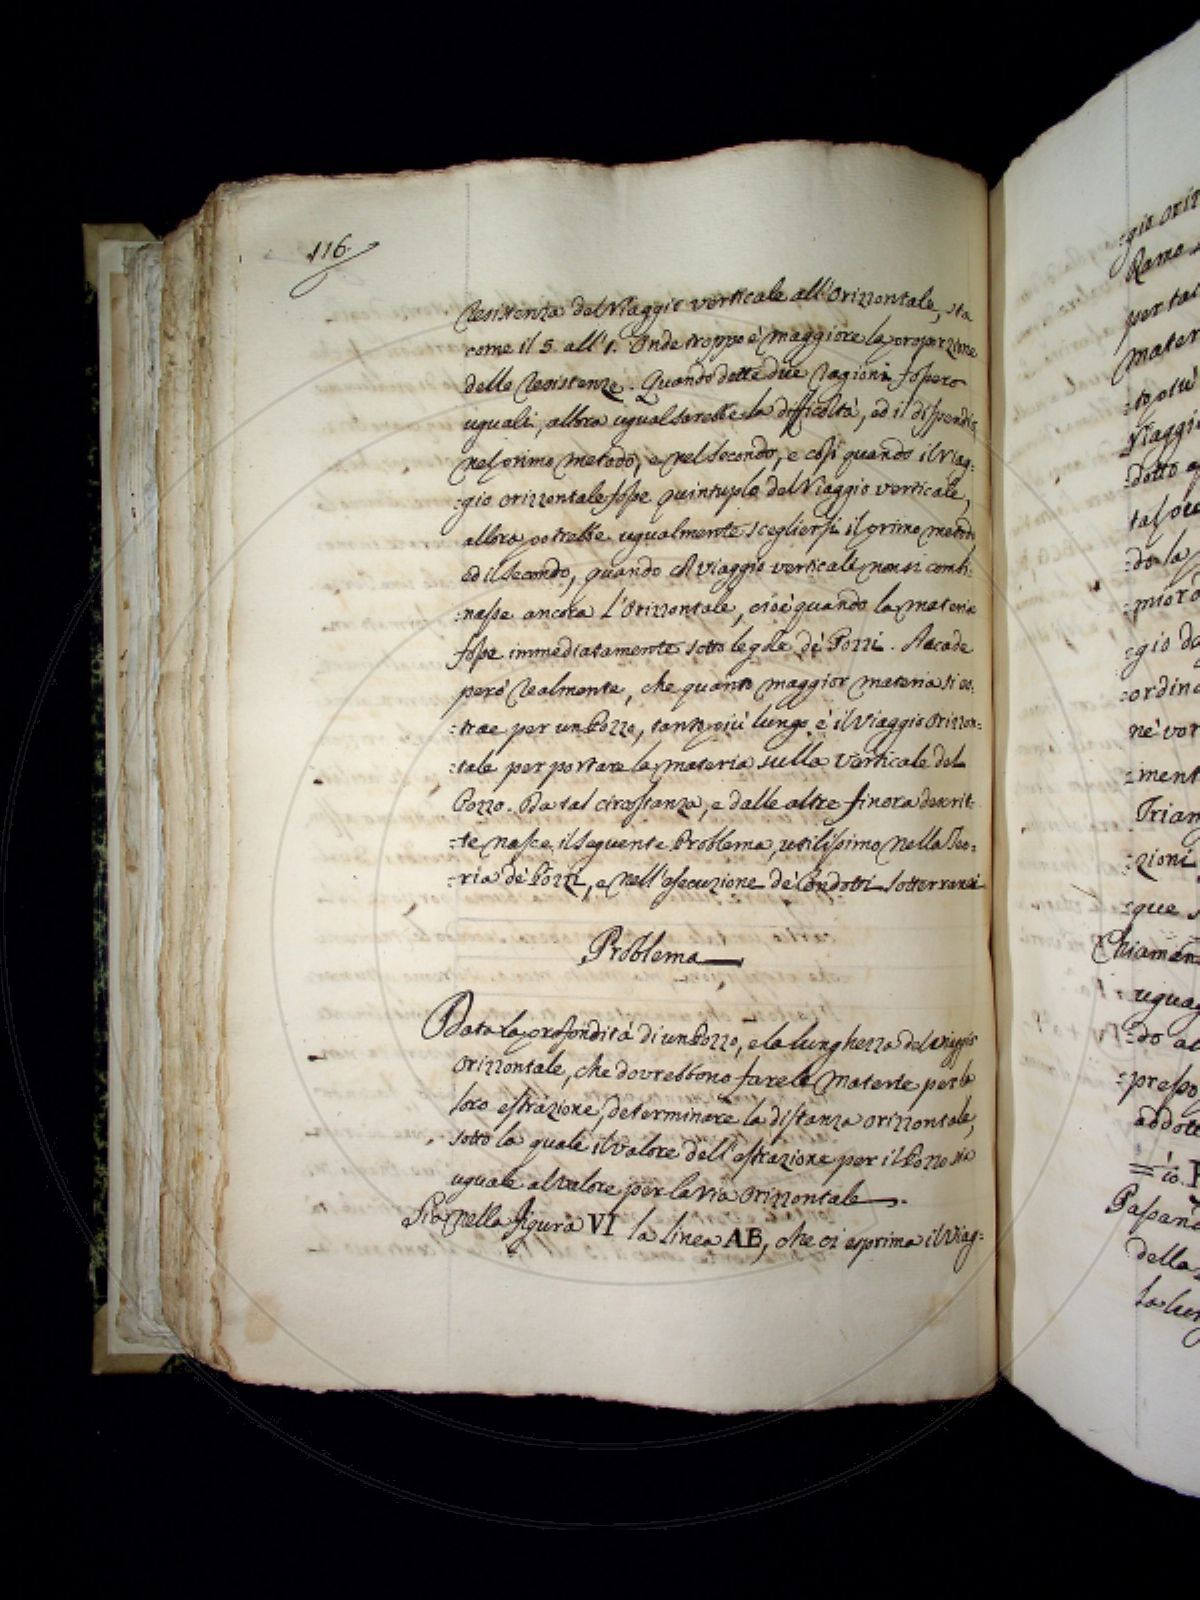 116.
Resistenza del Viaggio verticale all'Orizzontale, sta
come il 5. all'1. Onde troppo è maggiore la proporzione
delle Resistenze. Quando dette due ragioni fossero
uguali, allora ugual sarebbe la difficoltà, ed il dispendio
nel primo metodo, e nel secondo, e così quando il Viag:
:gio orizzontale fosse quintuplo del Viaggio verticale,
allora potrebbe ugualmente scegliersi il primo metodo
ed il secondo, quando col viaggio verticale non si combi:
:nasse ancora l'Orizzontale, cioè quando la materia
fosse immediatamente sotto le gole de' Pozzi. Accade
però realmente, che quanto maggior materia si es:
:trae per un Pozzo, tanto più lungo è il Viaggio Orizzon:
:tale per portare la materia sulla verticale del
Pozzo. Da tal circostanza, e dalle altre finora descrit:
:te nasce il seguente Problema, utilissimo nella Teo:
:ria de' Pozzi, e nell'esecuzione de' Condotti sotterranei
Problema
Data la profondità di un Pozzo, e la lunghezza del viaggio
Orizzontale, che dovrebbono fare le materie per la
loro estrazione, determinare la distanza orizzontale,
sotto la quale il valore dell'estrazione per il Pozzo sia
uguale al valore per la via Orizzontale.
Sia nella figura VI la linea AB, che ci esprima il Viag:
:gio
Ramo
per tal
mater
Viaggi
dotto
:do la
:gio
:ordin
:ment
Trian
:zioni
:que
Chiaman
:do al
addott
della